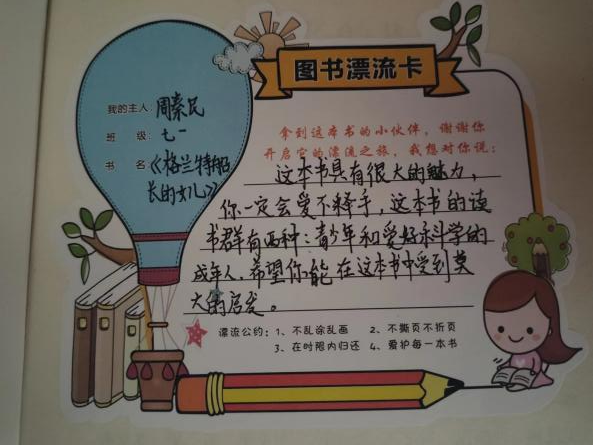 图书漂流卡
我的主人：周秦民
班 级：七一
书 名《格兰特船
长的女儿》
拿到这本书的小伙伴，谢谢你
开启它的漂流之旅，我想对你说：
这本书具有很大的魅力，
你一定会爱不释手，这本书的读
书群有两种：青少年和爱好科学的
成年人。希望你能在这本书中受到莫
大的启发。
漂流公约：1、不乱涂乱画 2、不撕页不折页
3、在时限内归还 4、爱护每一本书